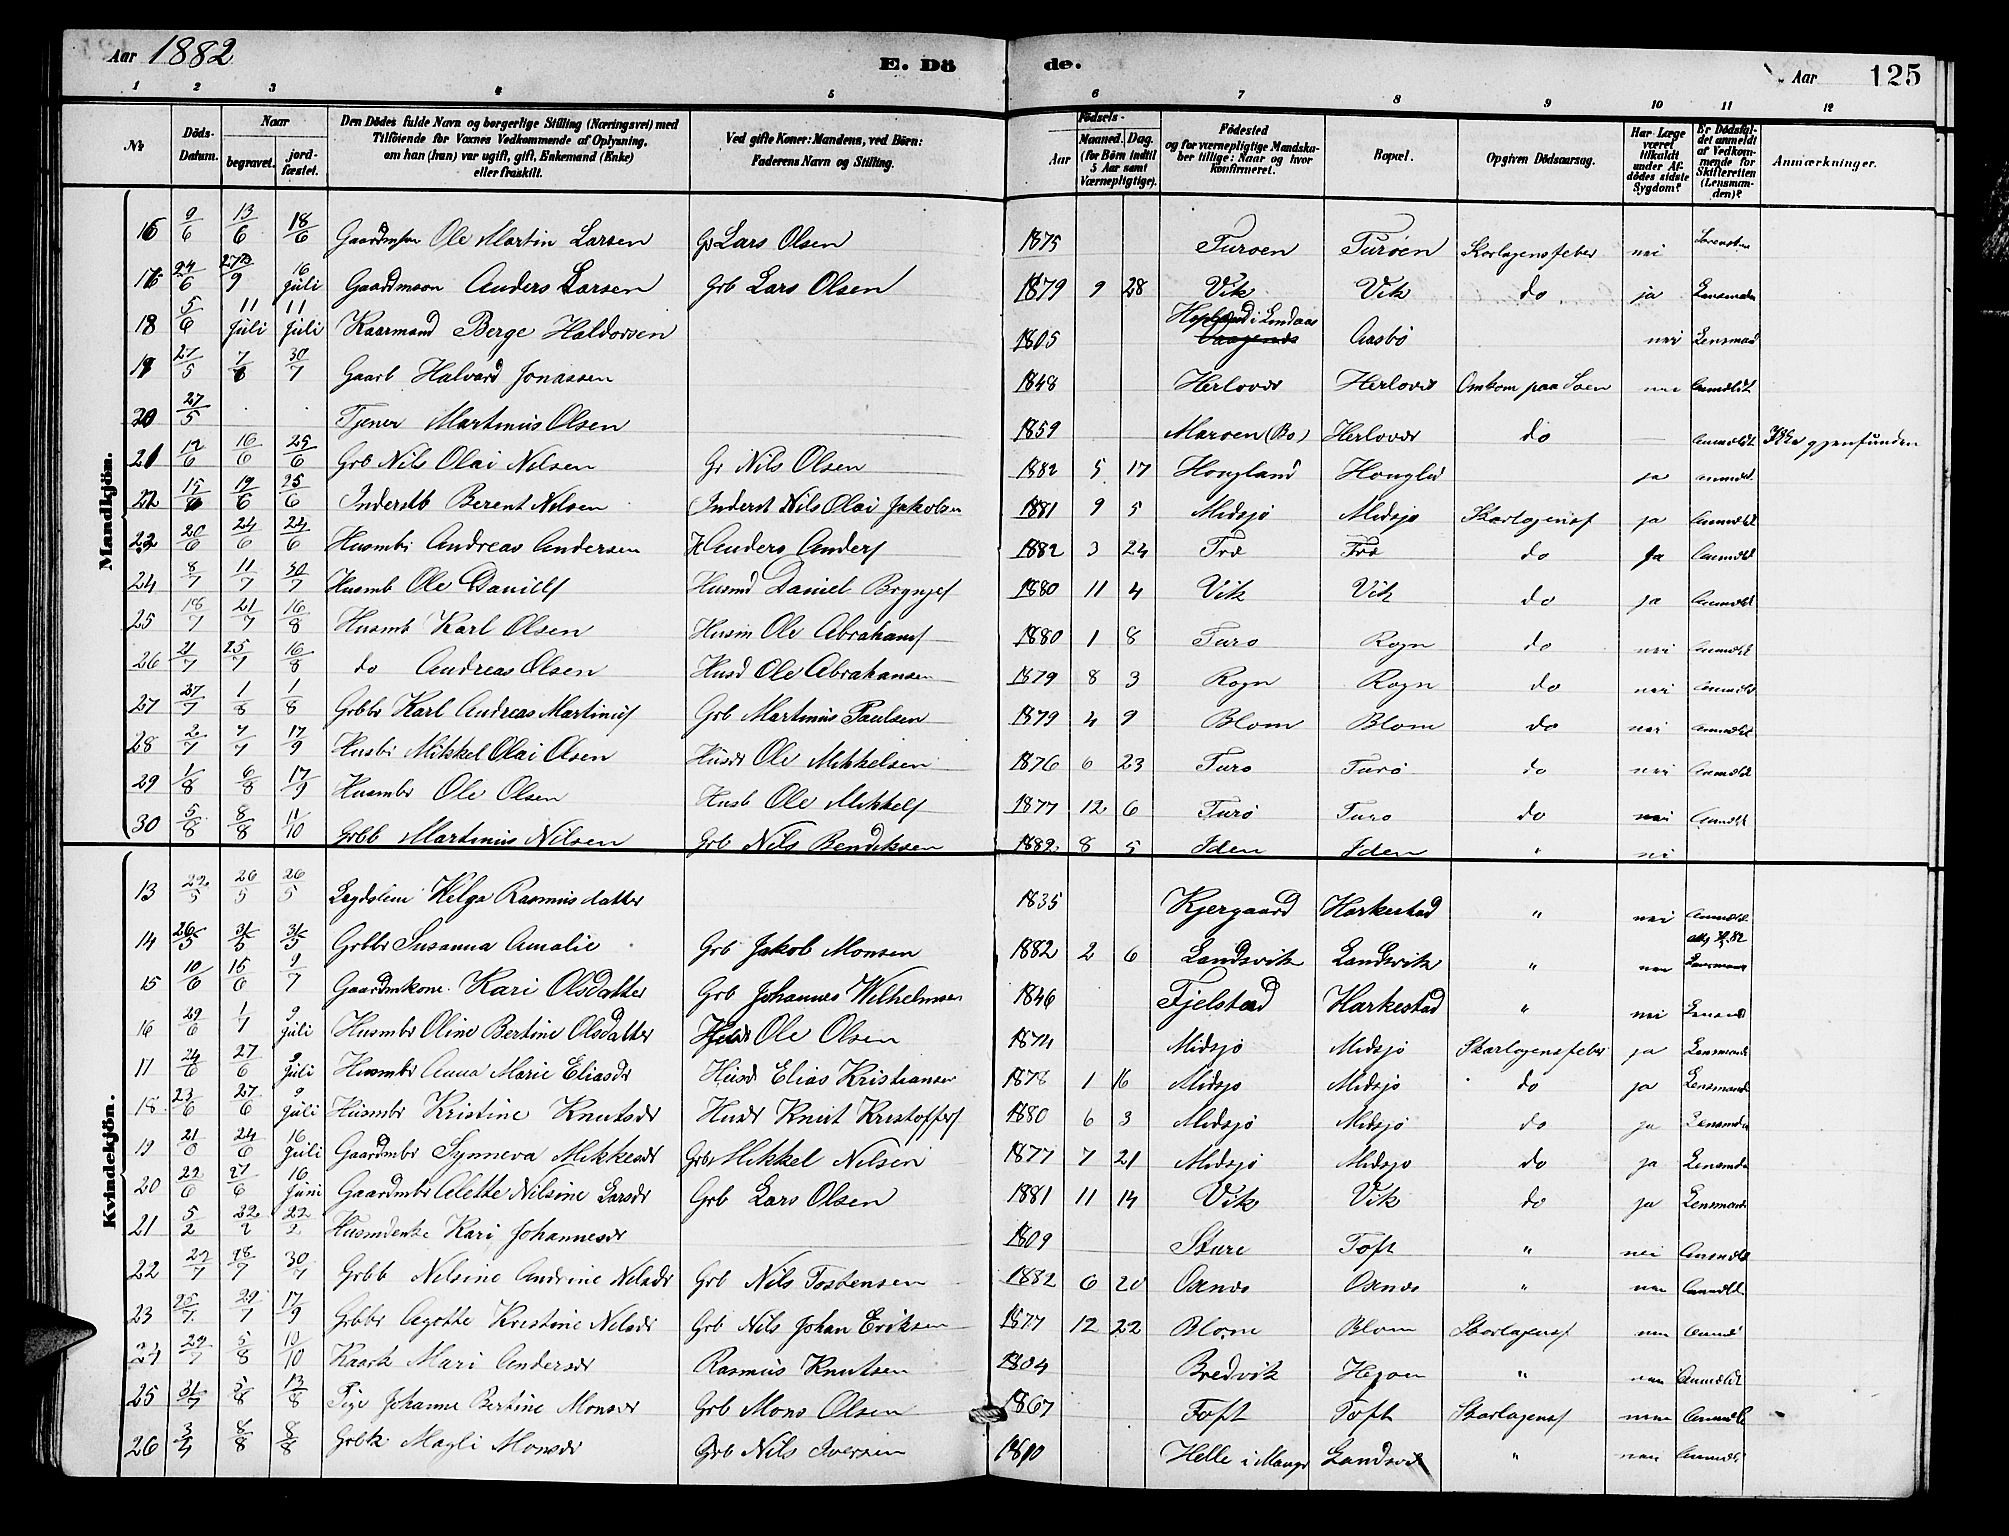 Aar 1882 E. Dö de. Aar 125
1 2 3 4 5 6 7 8 9 10 11 12
№ Döds-Datum. Naar begravet. jordfæstet. Den Dödes fulde Navn og borgerlige Stilling (Næringsvei) med Tilföiende for Voxnes Vedkommende af Oplysning, om han (hun) var ugift, gift, Enkemand (Enke) eller fraskilt. Ved gifte Koner: Mandens, ved Börn: Faderens Navn og Stilling. Födsels- Aar Maaned. Dag. (for Börn indtil 5 Aar samt Værnepligtige). Födested og for værnepligtige Mandskaber tillige: Naar og hvor konfirmeret. Bopæl. Opgiven Dödsaarsag. Har Læge været tilkaldt under Afdödes sidste Sygdom? Er Dödsfaldet anmeldt af Vedkommende for Skifteretten (Lensmanden)? Anmærkninger.
Mandkjön.
16 9/6 13/6 18/6 Gaardmsøn Ole Martin Larsen Gr Lars Olsen 1875 Turoen Turöen Skarlagensfeber nei
24/6 16 juli Gaardmsøn Anders Larsen Grb Lars Olsen 1879 9 28 Vik Vik do ja Lensmden
18 5/6 11 juli 11 juli Kaarmand Berge Haldorsen 1805 i Lindaas Aasbö nei Lensmand
19 27/5 30/7 Gaarb Halvard Jonassen 1848 Herlover Herlover Omkom paa Søen nei Anmeldt
20 27/5 Tjener Martinus Olsen 1859 Maroen (Bo) Herlover do — Anmeldt Ikke gjenfunden
21 12/6 16/6 25/6 Grb Nils Olai Nilsen Gr Nils Olsen 1882 5 17 Hougland Houglid ja anmeldt
22 15/6 19/6 25/6 Inderstb Berent Nilsen Inderst Nils Olai Jakobsen 1881 9 5 Midsjö Midsjo Skarlagensf ja Anmeldt
20/6 24/6 24/6 Husmb Andreas Andersen H Anders Anders 1882 3 24 Træ Træ do Ja Anmeldt
24 8/7 11/7 30/7 Husmb Ole Daniels Husmd Daniel Brynjels 1880 11 4 Vik Vik do ja Anmeldt
25 18/7 21/7 16/8 Husmb Karl Olsen Husm Ole Abrahams 1880 1 8 Turo Rogn do nei Anmeldt
26 21/7 25/7 16/8 do Andreas Olsen Husd Ole Abrahamsen 1879 8 3 Rogn Rogn do nei Anmeldt
27 27/7 1/8 1/8 Grbbr Karl Andreas Martinus Grb Martinus Paulsen 1879 4 9 Blom Blom do nei Anmeldt
28 2/7 7/7 17/9 Husbr Mikkel Olai Olsen Husdr Ole Mikkelsen 1876 6 23 Turo Turö do nei Anmeldt
29 1/8 6/8 17/9 Husmbr Ole Olsen Husb Ole Mikkels 1877 12 6 Turö Turo do nei Anmeldt
30 5/8 8/8 11/10 Grbb Martinus Nilsen Grb Nils Bendiksen 1882 8 5 Iden Iden " nei
Kvindekjön.
13 22/5 26/5 26/5 Lægdslem Helga Rasmusdatter 1835 Kjergaard Harkestad " nei Anmeldt
14 26/5 31/5 31/5 Grbbr Susanna Amalie Grb Jakob Monsen 1882 2 6 Landsvik Landsvik " nei
15 10/6 15/6 9/7 Gaardmkone Kari Olsdatter Grb Johannes Wilhelmsen 1846 Fjelstad Harkestad " nei Lensmd
16 29/6 1/7 9 juli Husmbr Oline Bertine Olsdatter Ole Olsen 1874 Midsjö Midsjö Skarlagensfeber ja Lensmande
17 24/6 27/6 9 juli Husmbr Anna Marie Eliasdr Husdr Elias Kristiansen 1878 1 16 Midsjo Midsjö do ja Lensmande
18 23/6 27/6 9 juli Husmbr Kristine Knutsdr Husdr Knut Kristoffers 1880 6 3 Midsjö Midsjö do ja Lensmden
19 21/6 24/6 16 juli Gaardmbr Synneva Mikkelsdr Grb Mikkel Nilsen 1877 7 21 Midsjö Midsjo do ja Lensmde
20 22/6 27/6 16 juni Gaardmbr Alette Nilsine Larsdr Grb Lars Olsen 1881 11 14 Vik Vik do ja Lensmande
21 5/2 22/2 22/2 Husmdenke Kari Johannesdr 1809 Sture Toft " nei Anmeldt
22 27/7 18/7 30/7 Grbb Nilsine Andrine Nilsdr Grb Nils Tostensen 1882 6 20 Oxnes Oxnes " nei Anmeldt
23 25/7 29/7 17/9 Grbbr Agotte Kristine Nilsdr Grb Nils Johan Eriksen 1877 12 22 Blom Blom Skarlagensf nei Anmd
29/7 5/8 10/10 Kaark Mari Andersdr Rasmus Knutsen 1804 Bredvik Hejoen " nei Anmeldt
25 31/7 5/8 13/8 Pige Johanne Bertine Monsdr Grb Mons Olsen 1867 Toft Toft Skarlagensf nei Anmeldt
26 8/8 8/8 Grbk Magli Monsdr Grb Nils Iversen 1810 Helle i Manger Landsvik " nei Anmeldt